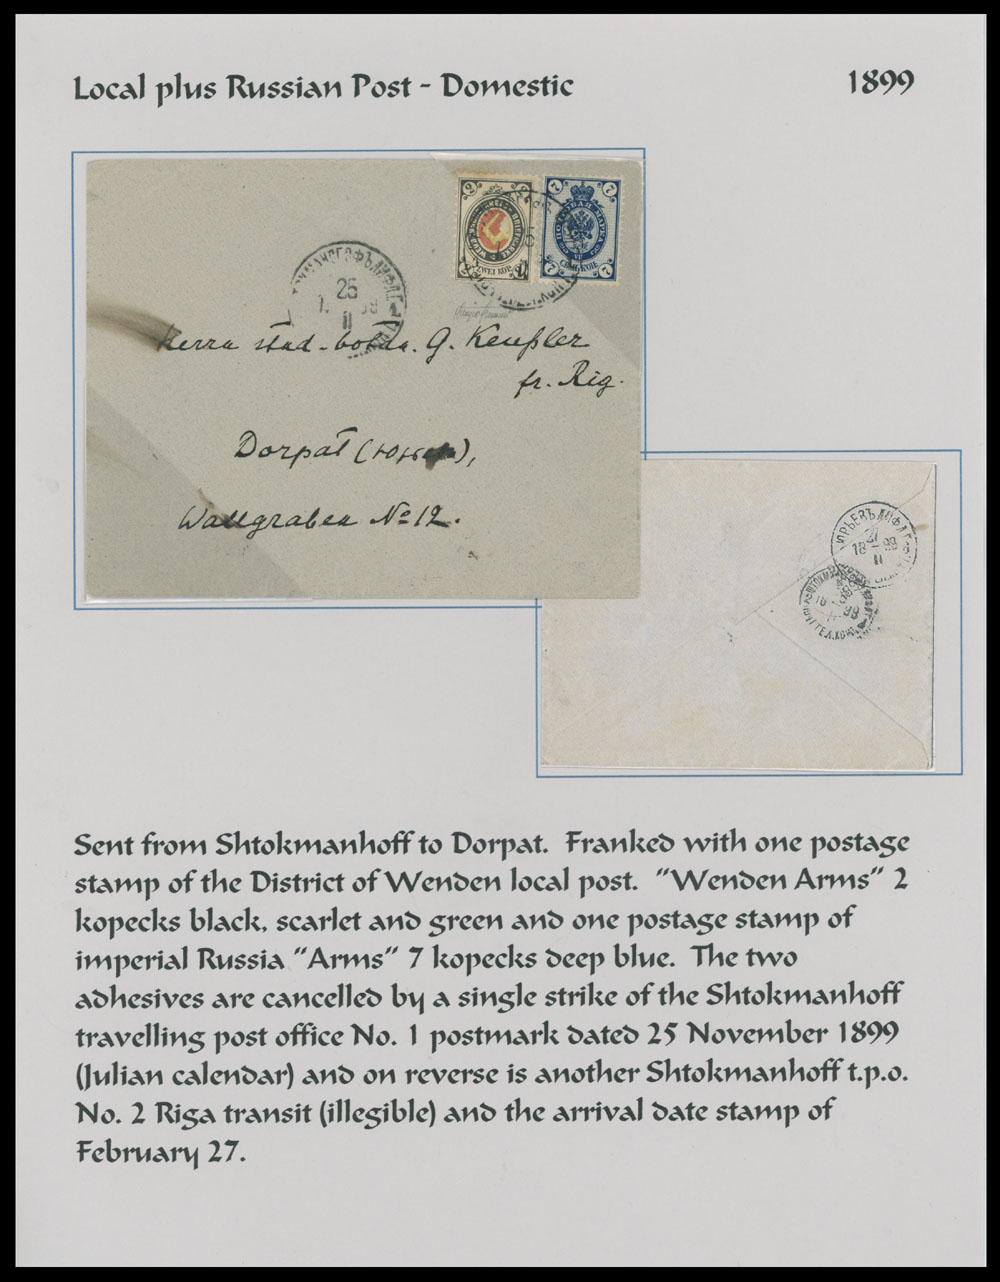 Local plus Russian Post - Domestic 1899
2 2
ZWEI KOP.
2
7 7
СЕМЬ КОП.
7 7
25
II
Herrn stud. botan. G. Keußler
fr. Rig.
Dorpat
Wallgraben № 12.
ЮРЬЕВЪ ЛИФЛ.
27
18 99
II
Sent from Shtokmanhoff to Dorpat. Franked with one postage
stamp of the District of Wenden local post. "Wenden Arms" 2
kopecks black, scarlet and green and one postage stamp of
imperial Russia "Arms" 7 kopecks deep blue. The two
adhesives are cancelled by a single strike of the Shtokmanhoff
travelling post office No. 1 postmark dated 25 November 1899
(Julian calendar) and on reverse is another Shtokmanhoff t.p.o.
No. 2 Riga transit (illegible) and the arrival date stamp of
February 27.